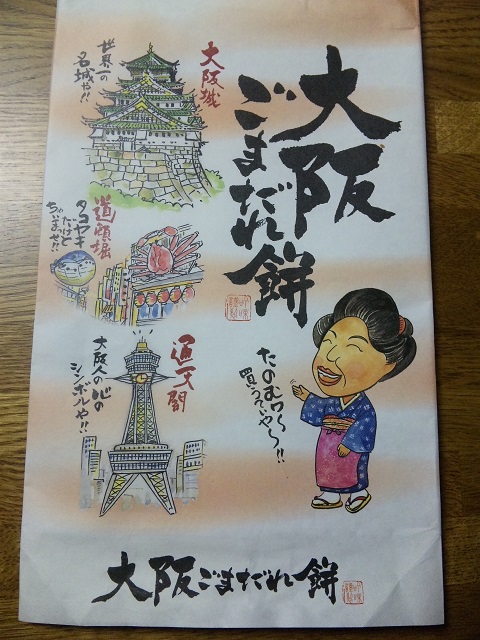 大阪
ごまだれ餅
大阪城
世界一の
名城や!!
道頓堀
タコヤキ
だけと
ちゃいまっせ!!
通天閣
大阪人の心の
シンボルや!!
たのむワ〜
買うていや〜!!
大阪ごまだれ餅